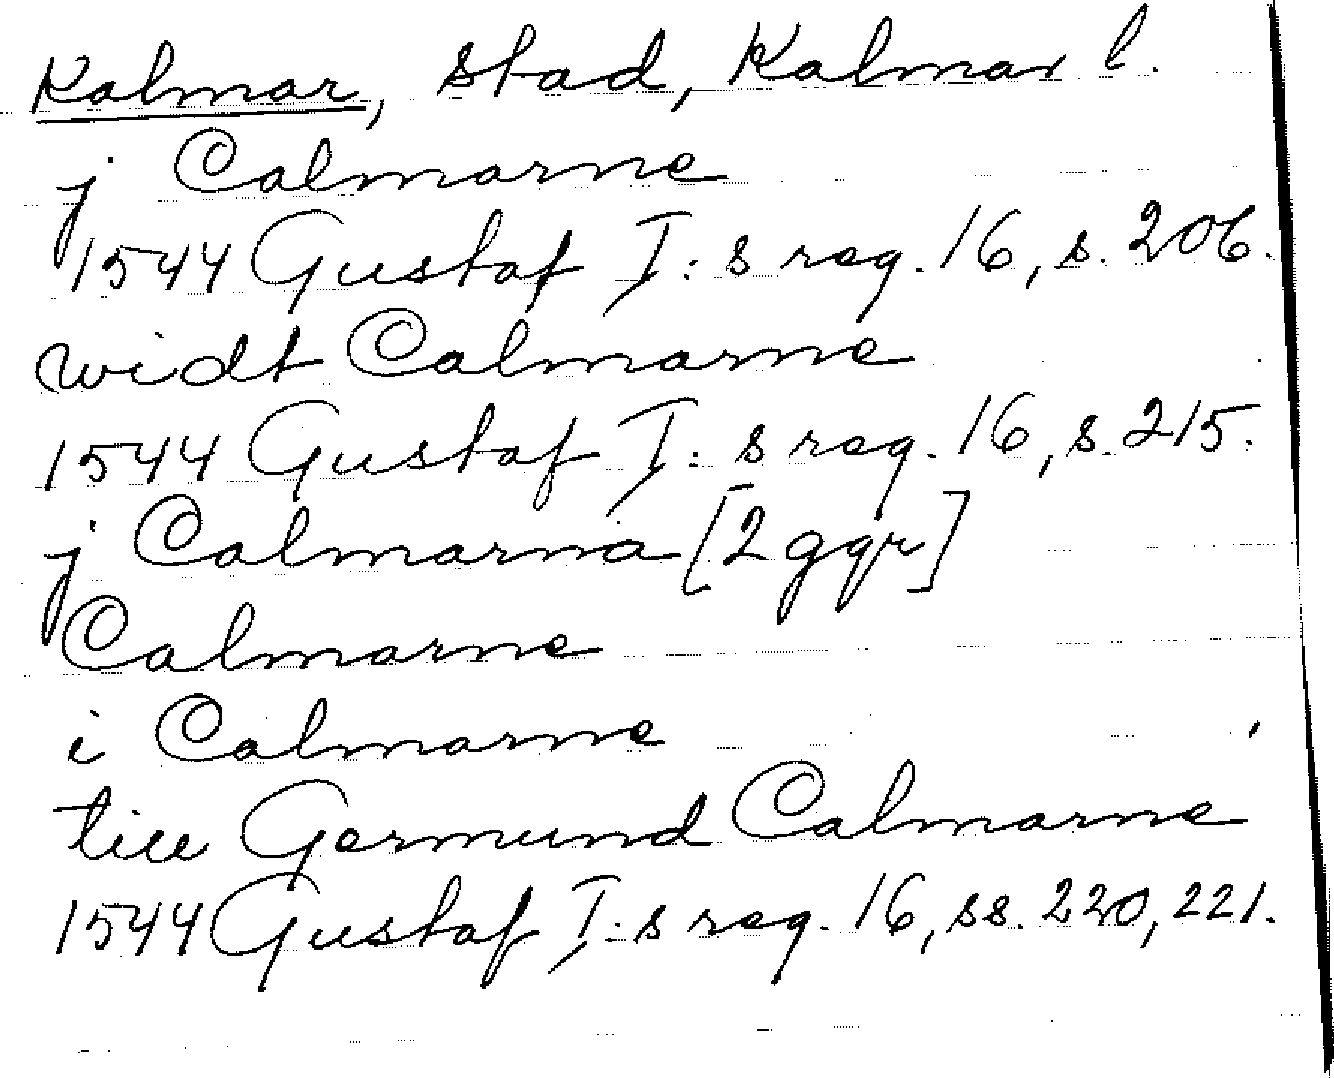 Kalmar, stad, Kalmar l.
j Calmarne
1544 Gustaf I:s reg. 16, s. 206.
widt Calmarne
1544 Gustaf I:s reg. 16, s. 215.
j Calmarna [2 ggr]
Calmarne
i Calmarne
till Germund Calmarne
1544 Gustaf I:s reg. 16, ss. 220, 221.